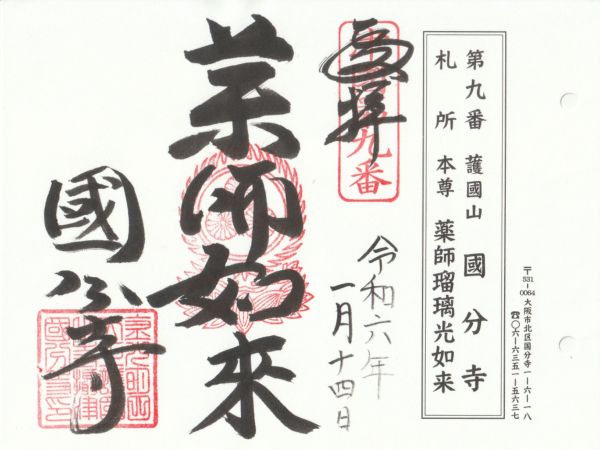 第九番 護國山 國分寺
札所 本尊 薬師瑠璃光如来
〒531-0064 大阪市北区国分寺一-六-一八
☎〇六-六三五一-五六三七
奉拝
九番
令和六年
一月十四日
薬師如来
國分寺